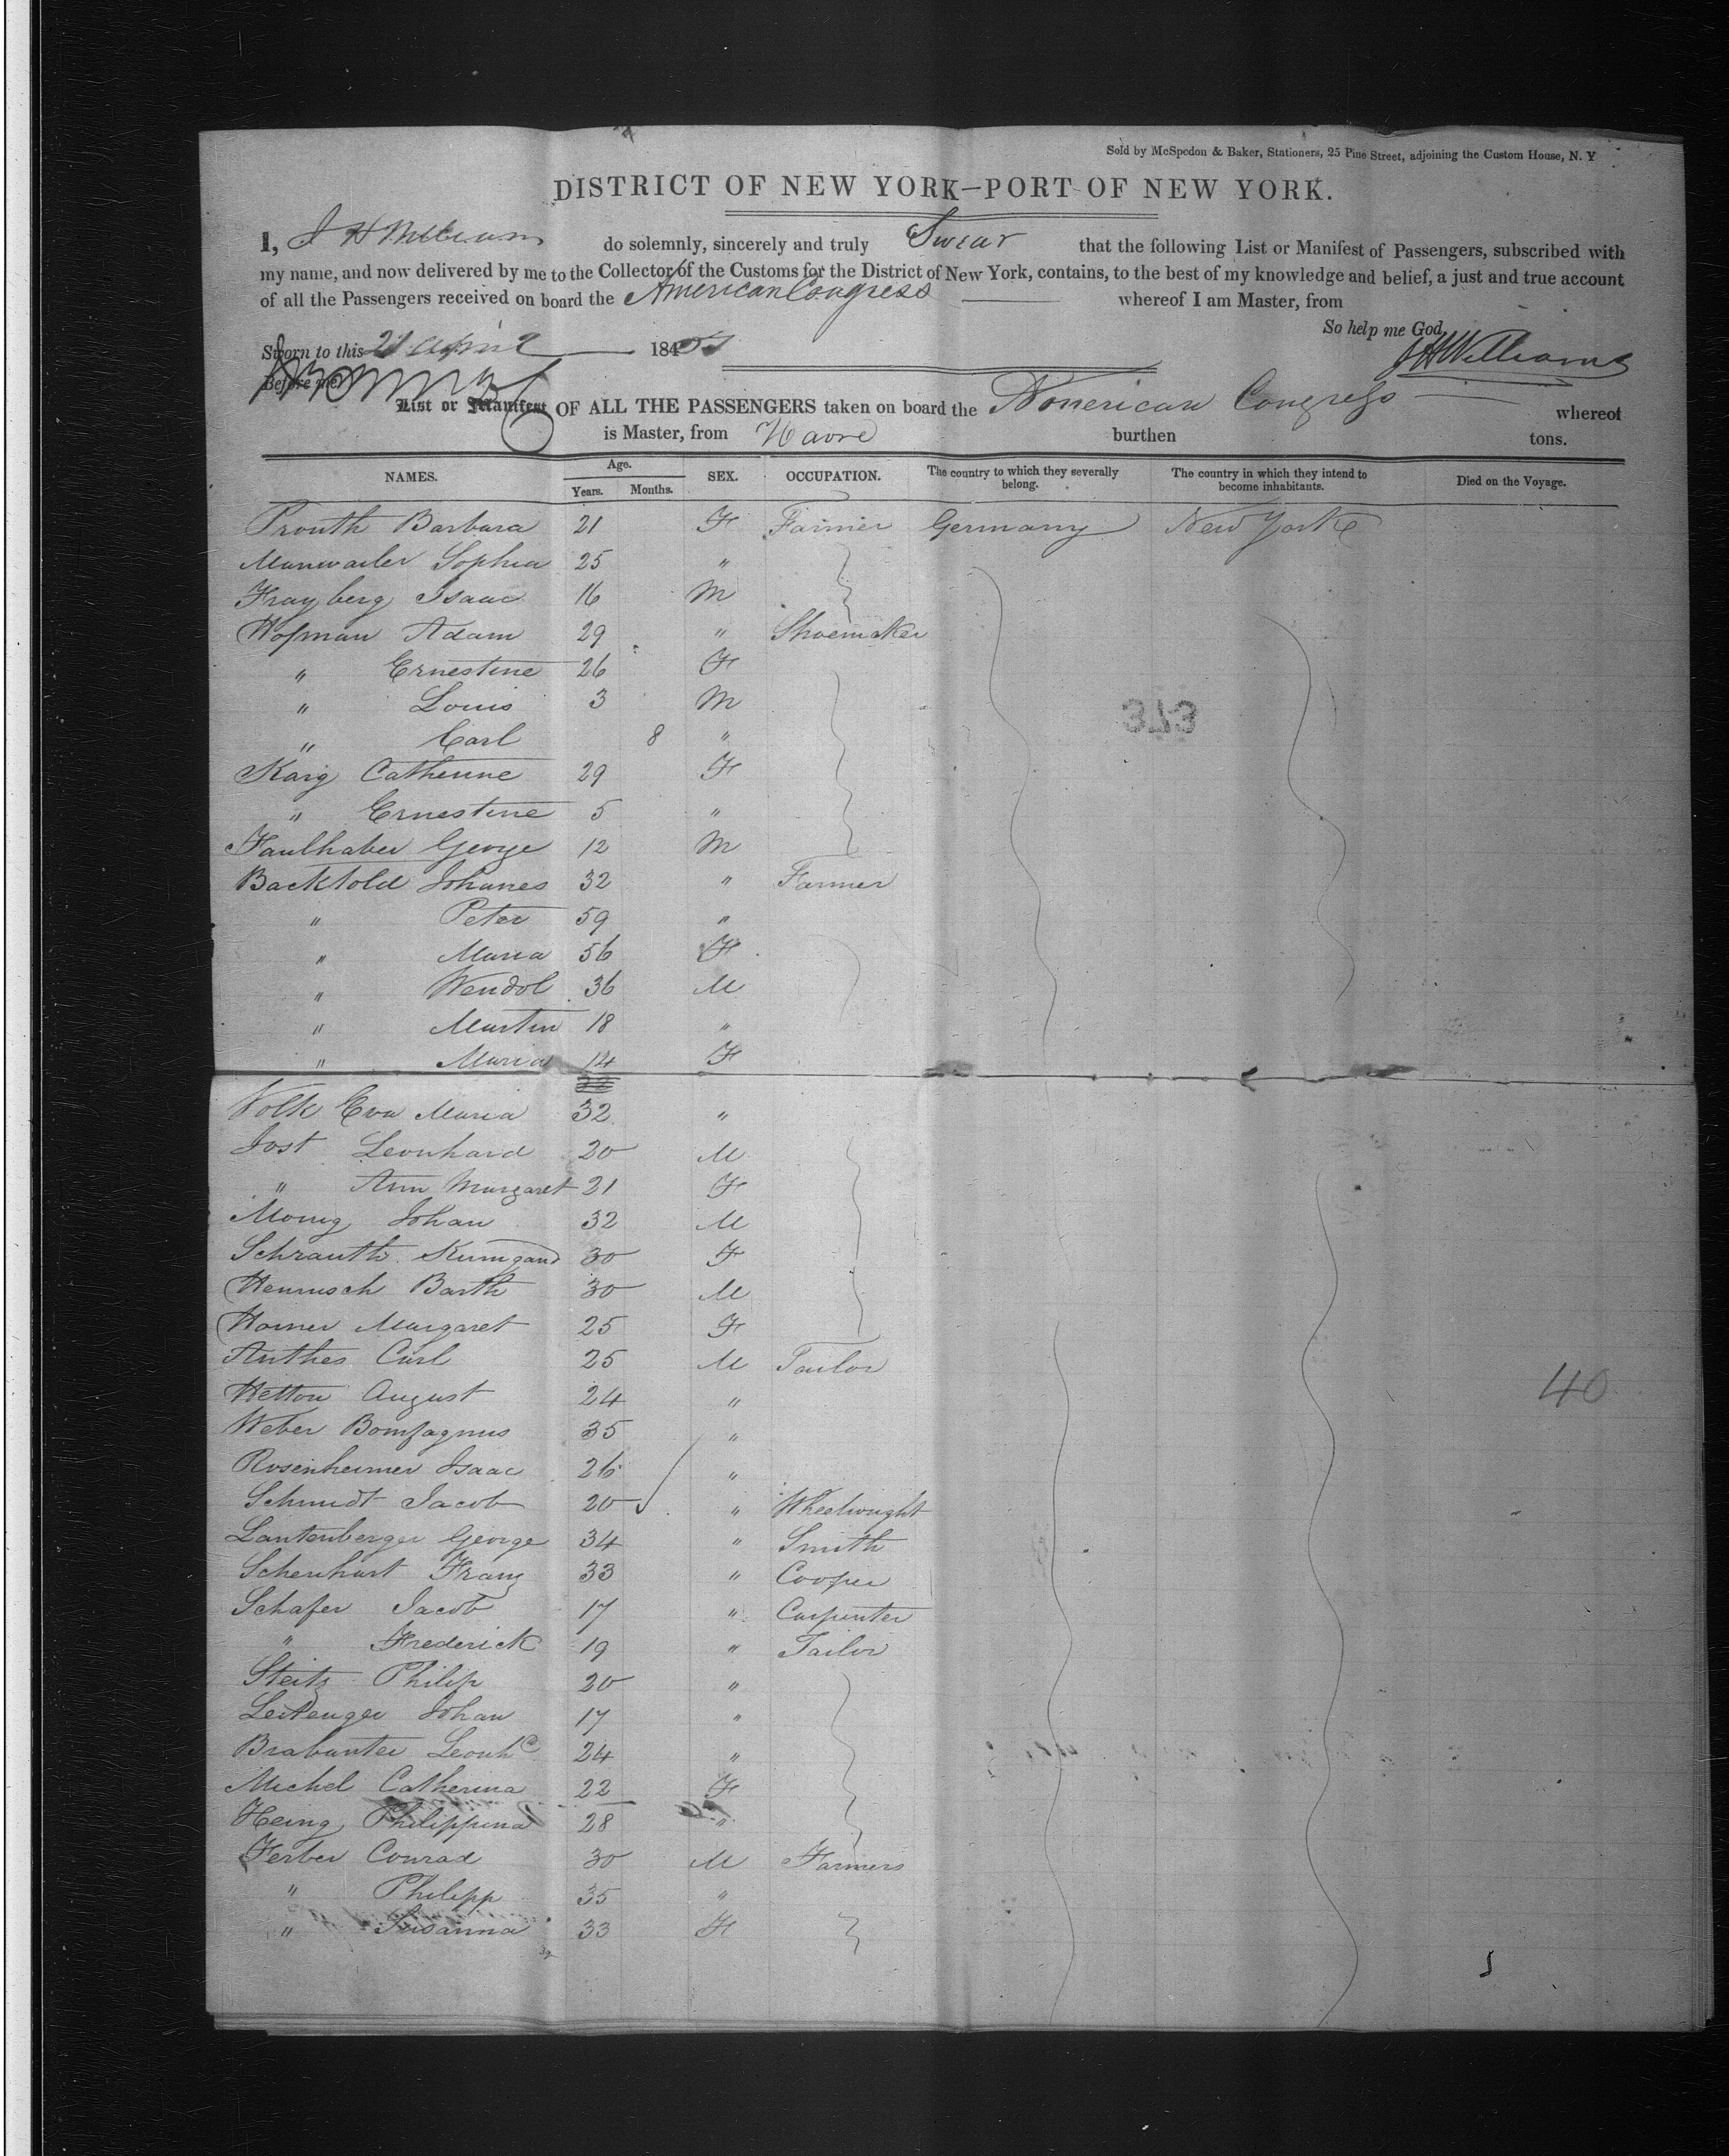 Sold by McSpedon & Baker, Stationers, 25 Pine Street, adjoining the Custom House, N. Y
DISTRICT OF NEW YORK—PORT OF NEW YORK.
I, J H Williams do solemnly, sincerely and truly Swear that the following List or Manifest of Passengers, subscribed with
my name, and now delivered by me to the Collector of the Customs for the District of New York, contains, to the best of my knowledge and belief, a just and true account
of all the Passengers received on board the American Congress whereof I am Master, from
So help me God,
Sworn to this 21 April 1851 J H Williams
Before me
List or Manifest OF ALL THE PASSENGERS taken on board the American Congress whereof
is Master, from Havre burthen tons.
NAMES. Age. Years. Months. SEX. OCCUPATION. The country to which they severally belong. The country in which they intend to become inhabitants. Died on the Voyage.
Prouth Barbara 21 F Farmer Germany New York
Munwailer Sophia 25 "
Frayberg Isaac 16 M
Hofman Adam 29 " Shoemaker
" Ernestine 26 F
" Louis 3 M
" Carl 8 "
Karg Catherine 29 F
" Ernestine 5 "
Faulhaber George 12 M
Backtold Johanes 32 " Farmer
" Peter 59 "
" Maria 56 F
" Wendol 36 M
" Martin 18 "
" Maria 14 F
Volk Eva Maria 32 "
Jost Leonhard 20 M
" Ann Margaret 21 F
Monig Johan 32 M
Schrauth 30 F
Henrusch Barth 30 M
Horner Margaret 25 F
Anthes Carl 25 M Tailor
Hetton August 24 "
Weber 35 "
Rosenheimer Isaac 26 "
Schmidt Jacob 20 " Wheelwright
Lantenberger George 34 " Smith
Schenhart Franz 33 " Cooper
Schafer Jacob 17 " Carpenter
" Frederick 19 " Tailor
Steitz Philip 20 "
Johan 17 "
Brabanter Leonhd 24 "
Michel Catherina 22 F
Heing Philippina 28 "
Ferber Conrad 30 M Farmers
" Philipp 35 "
" Susanna 33 F
373
40